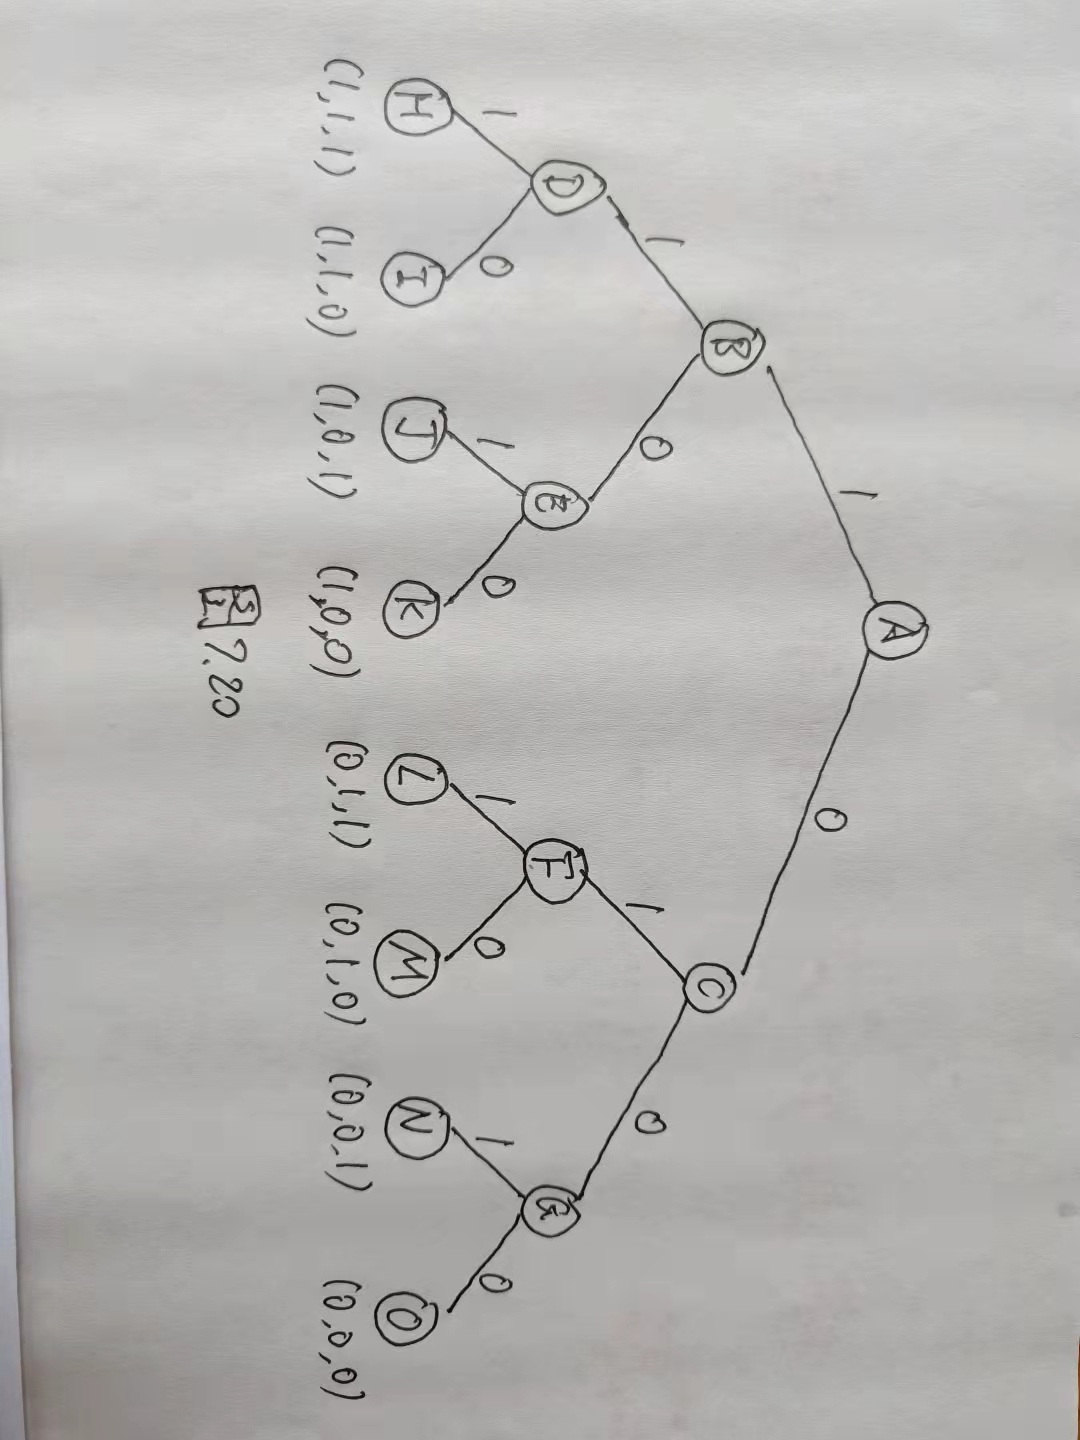 A
1 0
B C
1 0 1 0
D E F G
1 0 1 0 1 0 1 0
H I J K L M N O
(1,1,1) (1,1,0) (1,0,1) (1,0,0) (0,1,1) (0,1,0) (0,0,1) (0,0,0)
图7.20